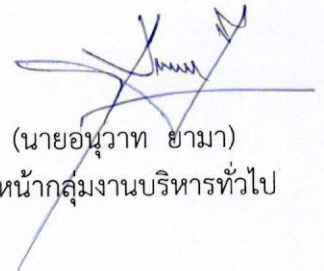 (นายอนุวาท ยามา)
หน้ากลุ่มงานบริหารทั่วไป